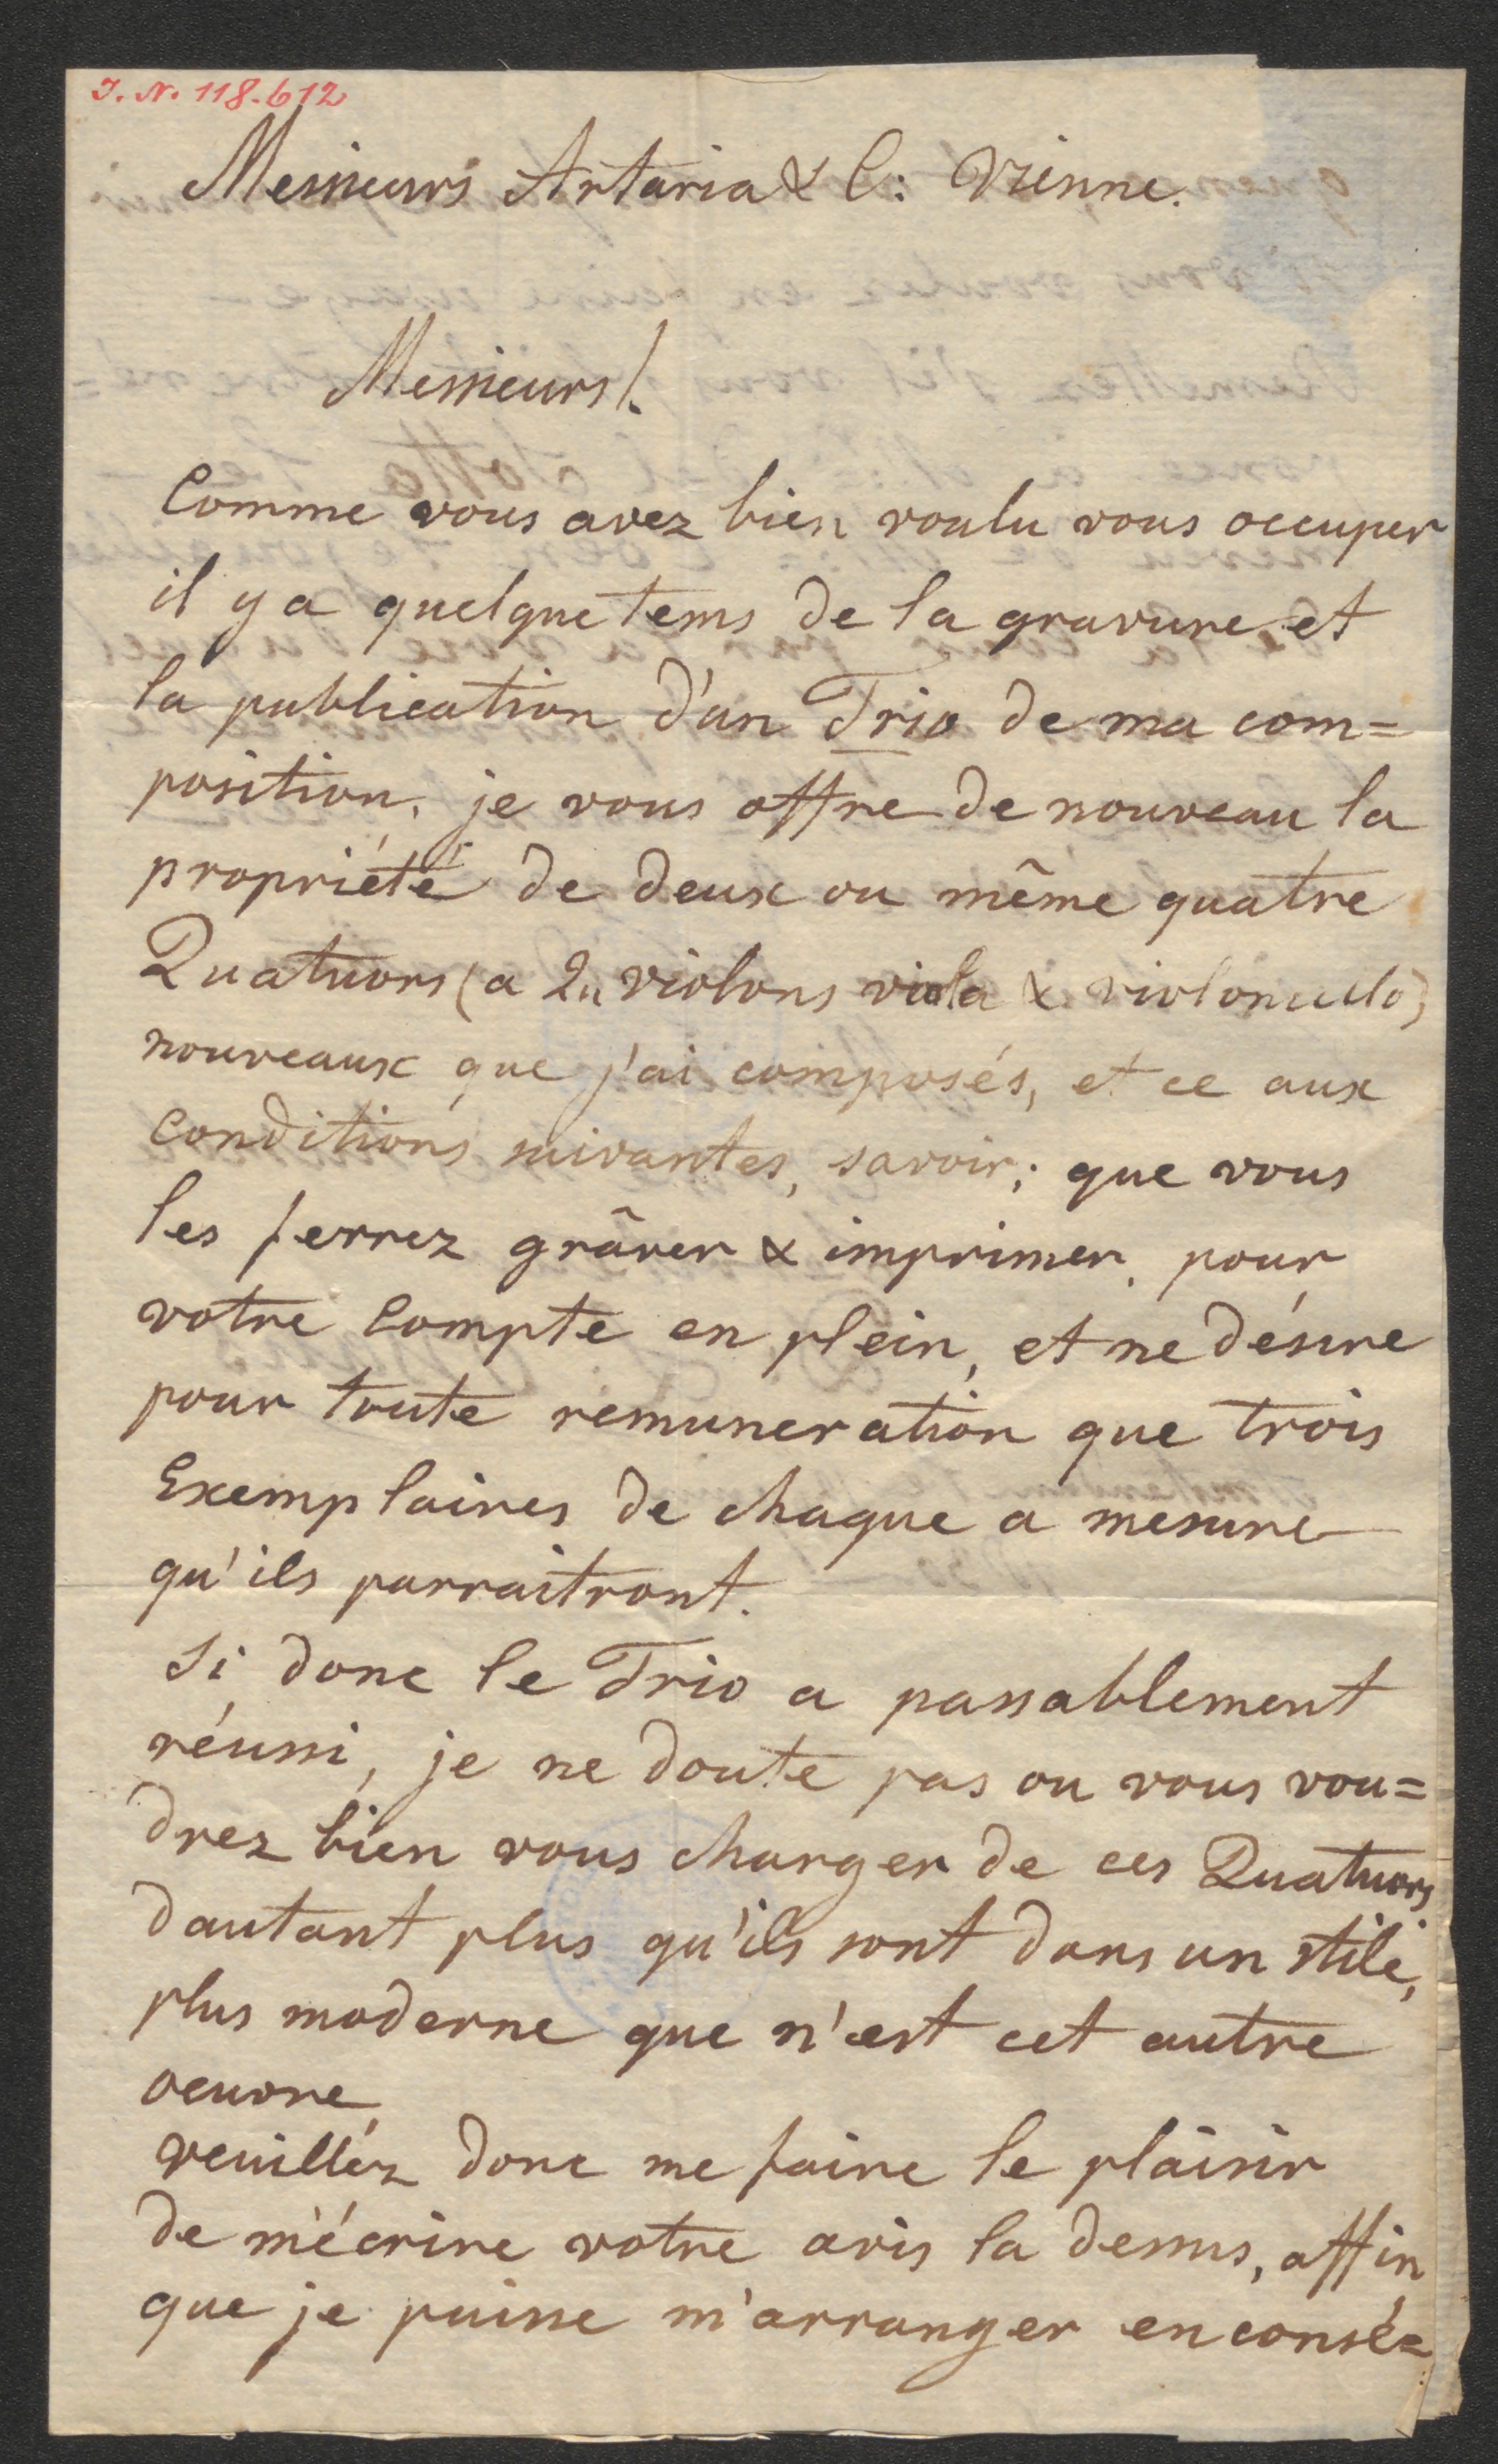 I. N. 118.612
Messieurs Artaria & C: Vienne.
Messieurs!
Comme vous avez bien voulu vous occuper
il y a quelque tems de la gravure et
la publication d'un Trio de ma com=
position, je vous offre de nouveau la
propriété de deux ou même quatre
Quatuors (a 2 violons viola & violoncello)
nouveaux que j'ai composés, et ce aux
conditions suivantes, savoir; que vous
les ferrez grâver & imprimer, pour
votre Compte en plein, et ne désire
pour toute remuneration que trois
Exemplaires de chaque a mesure
qu'ils parraitront.
Si donc le Trio a passablement
réussi, je ne doute pas ou vous vou=
drez bien vous charger de ces Quatuors
dautant plus qu'ils sont dans un stile,
plus moderne que n'est cet autre
oeuvre,
veuilléz donc me faire le plaisir
de m'écrire votre avis la dessus, affin
que je puisse m'arranger en consé=